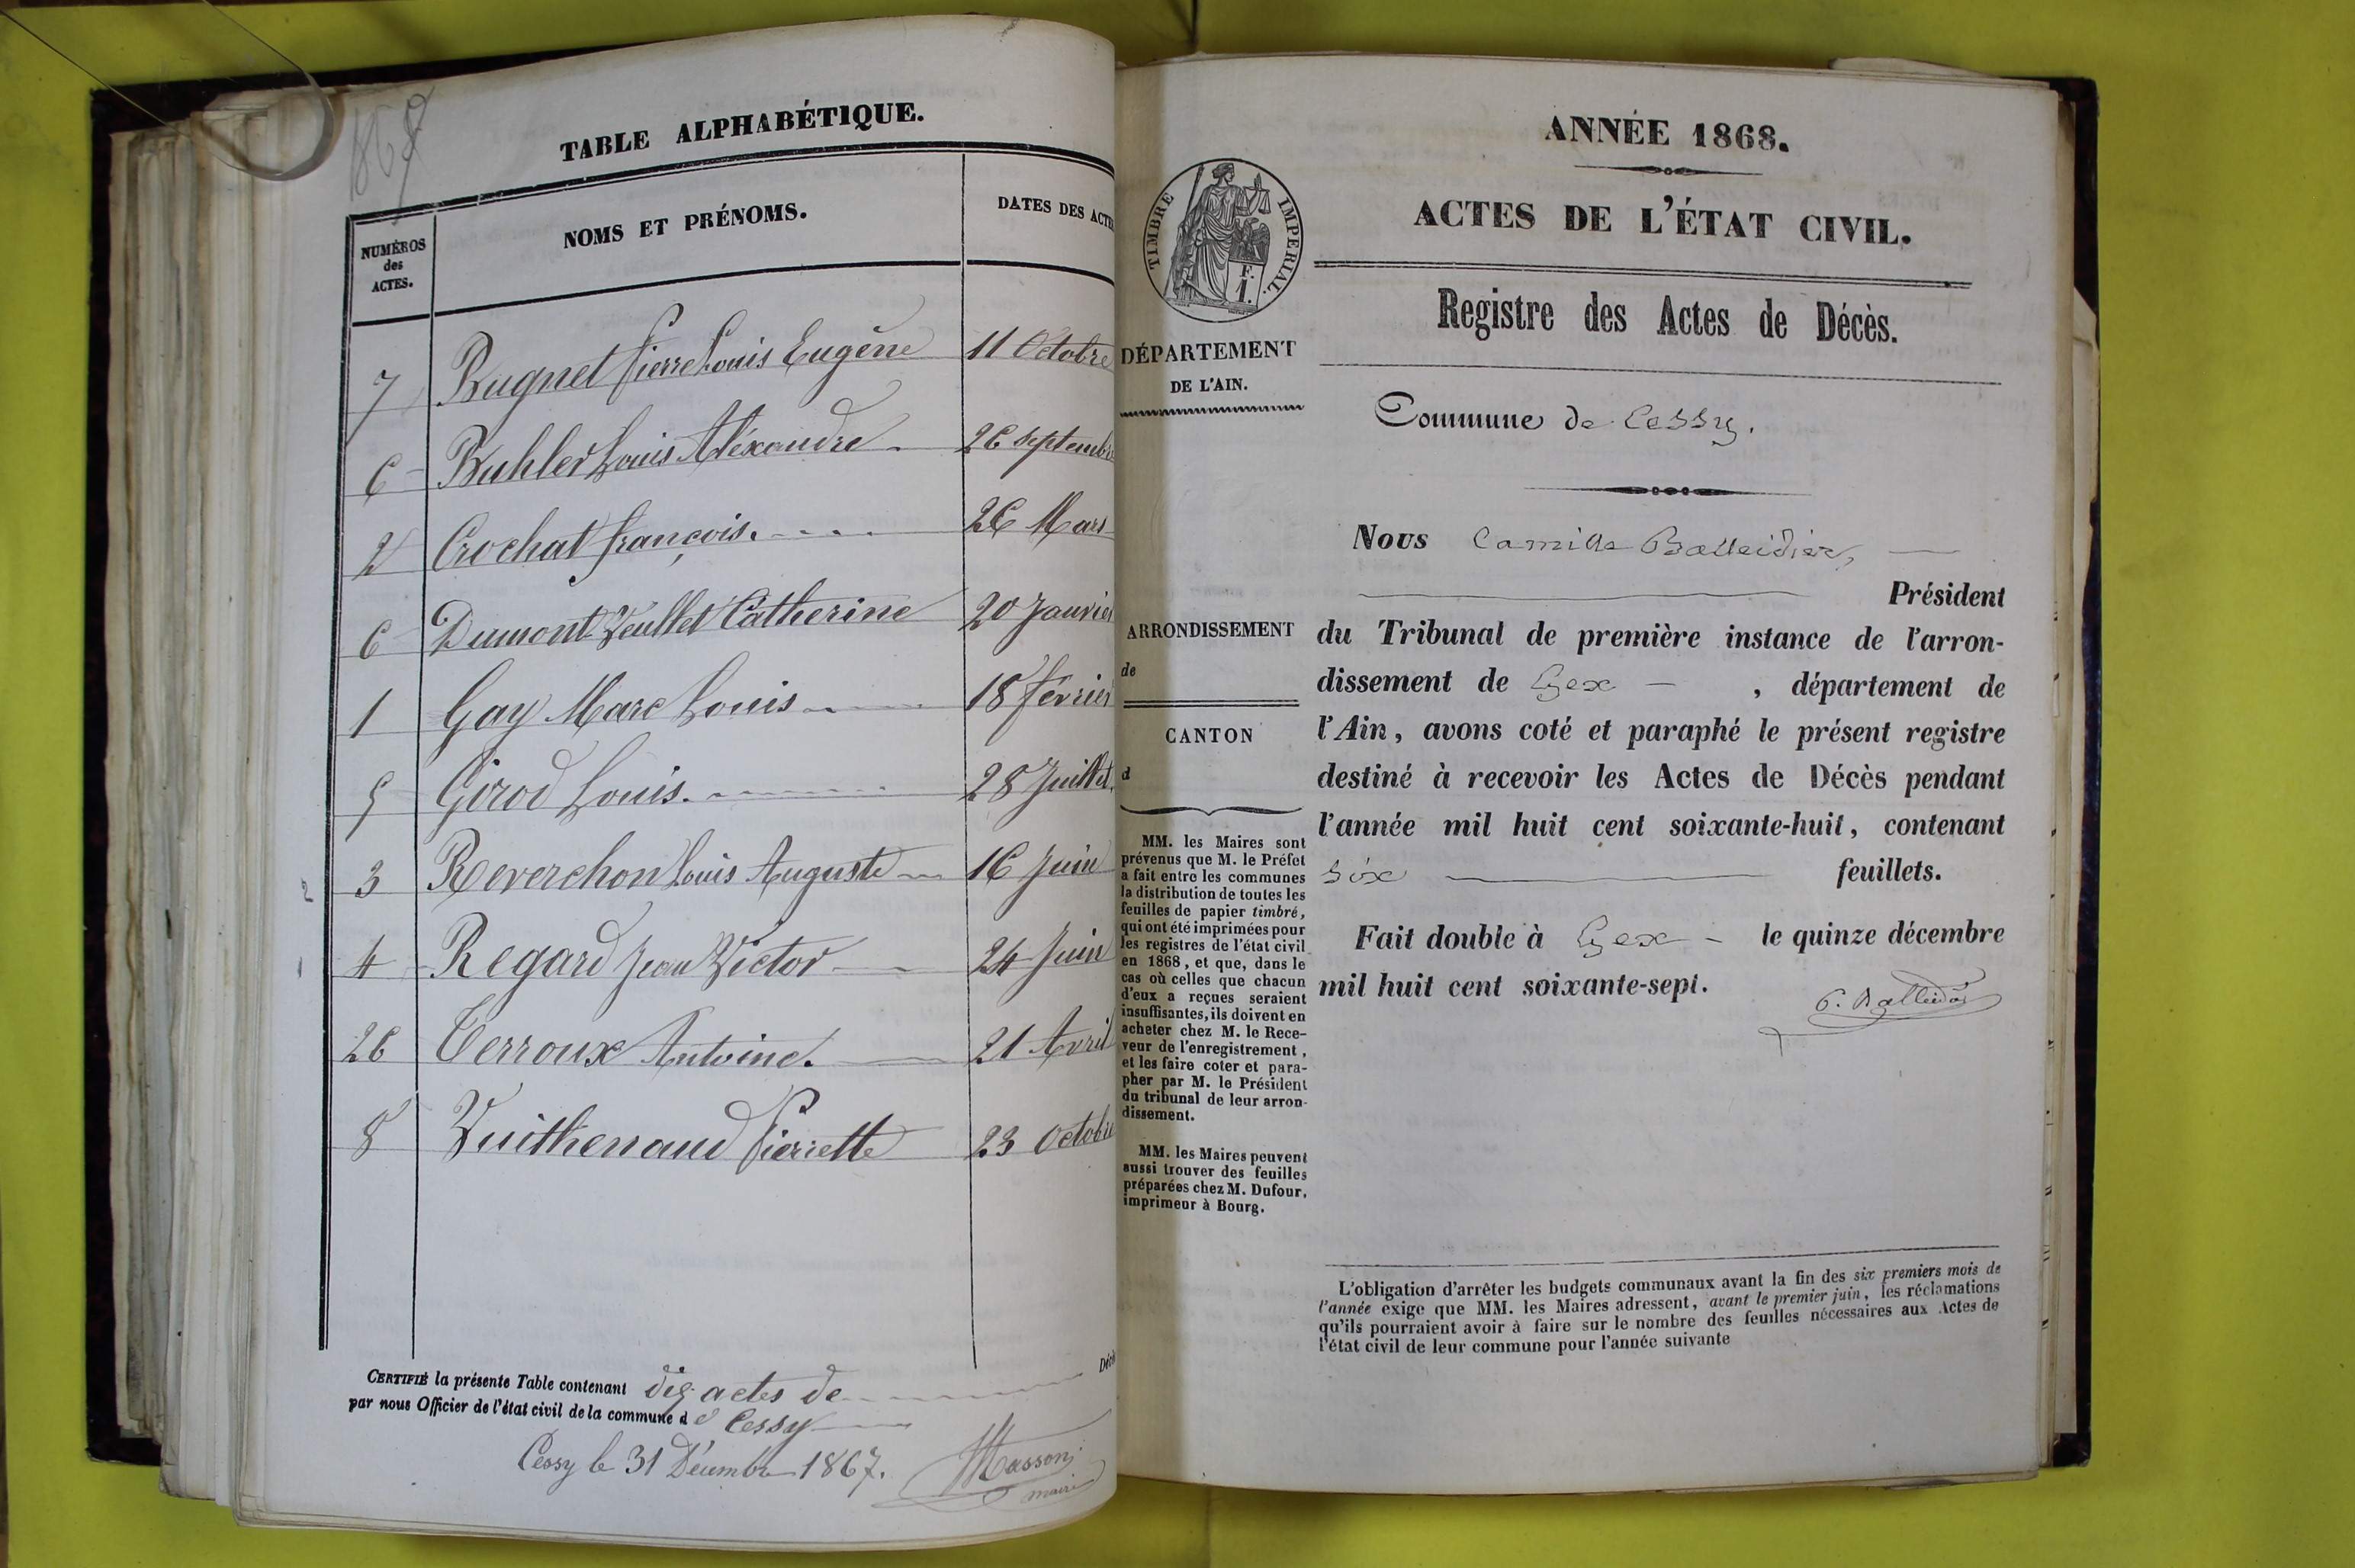 1867
TABLE ALPHABÉTIQUE.
NUMÉROS des ACTES.
NOMS ET PRÉNOMS.
DATES DES ACTE
7 Bugnet Pierre Louis Eugène 11 Octobre
6 Buhler Louis Aléxandre 26 septembre
2 Crochat François. 26 Mars
6 Dumont Veullet Catherine 20 Janvier
1 Gay Marc Louis 18 février
5 Girod Louis. 28 Juillet.
3 Reverchon Louis Auguste 16 Juin
4 Regard Jean Victor 24 Juin
26 Terroux Antoine. 21 Avril
8 Vuithenaud Pierrette 23 Octobre
CERTIFIÉ la présente Table contenant dix actes de Décès
par nous Officier de l'état civil de la commune d e Cessy
Cessy le 31 Décembre 1867.
Masson
maire
TIMBRE IMPÉRIAL.
F.
1.
DÉPARTEMENT
DE L'AIN.
ARRONDISSEMENT
de
CANTON
d
MM. les Maires sont
prévenus que M. le Préfet
a fait entre les communes
la distribution de toutes les
feuilles de papier timbré,
qui ont été imprimées pour
les registres de l'état civil
en 1868, et que, dans le
cas où celles que chacun
d'eux a reçues seraient
insuffisantes, ils doivent en
acheter chez M. le Rece-
veur de l'enregistrement,
et les faire coter et para-
pher par M. le Président
du tribunal de leur arron-
dissement.
MM. les Maires peuvent
aussi trouver des feuilles
préparées chez M. Dufour,
imprimeur à Bourg.
ANNÉE 1868.
ACTES DE L'ÉTAT CIVIL.
Registre des Actes de Décès.
Commune de Cessy.
Nous Camille Balleidier,
Président
du Tribunal de première instance de l'arron-
dissement de Gex , département de
l'Ain, avons coté et paraphé le présent registre
destiné à recevoir les Actes de Décès pendant
l'année mil huit cent soixante-huit, contenant
six feuillets.
Fait double à Gex le quinze décembre
mil huit cent soixante-sept.
C. Balleidier
L'obligation d'arrêter les budgets communaux avant la fin des six premiers mois de
l'année exige que MM. les Maires adressent, avant le premier juin, les réclamations
qu'ils pourraient avoir à faire sur le nombre des feuilles nécessaires aux Actes de
l'état civil de leur commune pour l'année suivante